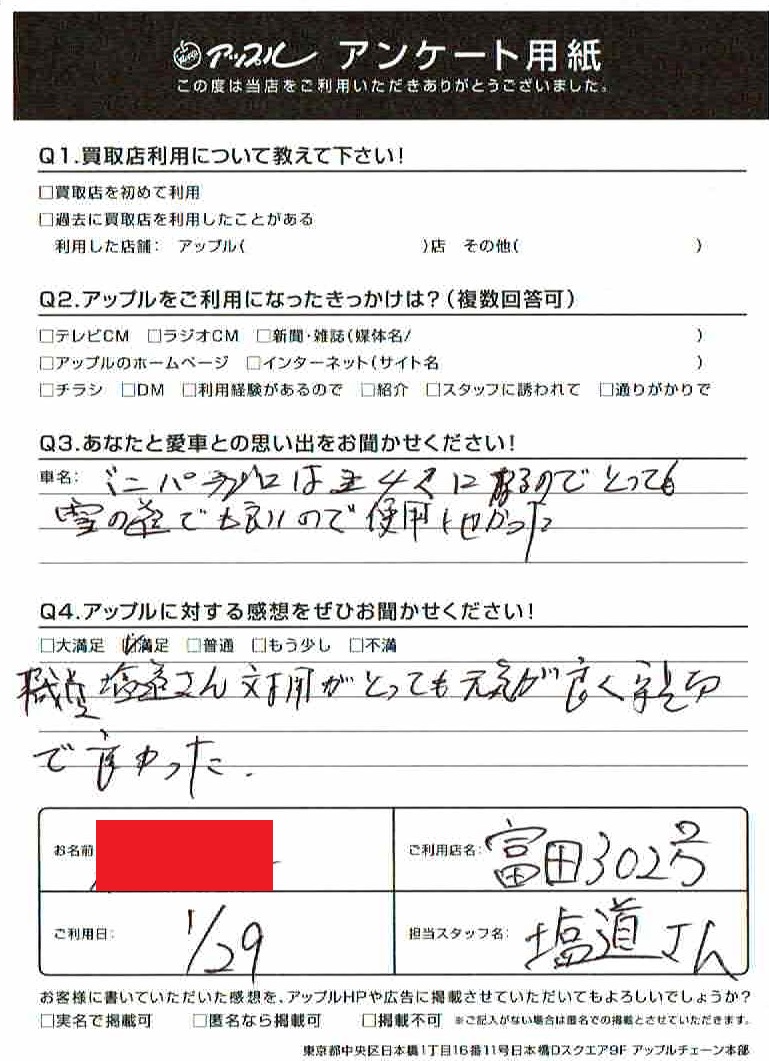 アップル アンケート用紙
この度は当店をご利用いただきありがとうございました。
Q1.買取店利用について教えて下さい!
□買取店を初めて利用
□過去に買取店を利用したことがある
利用した店舗: アップル( )店 その他( )
Q2.アップルをご利用になったきっかけは?(複数回答可)
□テレビCM □ラジオCM □新聞・雑誌(媒体名/ )
□アップルのホームページ □インターネット(サイト名 )
□チラシ □DM □利用経験があるので □紹介 □スタッフに誘われて □通りがかりで
Q3.あなたと愛車との思い出をお聞かせください!
車名: ミニパジェロは 4 になるのでとっても
雪の道でも良いので使用しやすかった
Q4.アップルに対する感想をぜひお聞かせください!
□大満足 □満足 □普通 □もう少し □不満
職員 塩道さん 対用がとっても元気が良く親切
で良かった.
お名前
ご利用店名: 富田302号
ご利用日: 1/29
担当スタッフ名: 塩道さん
お客様に書いていただいた感想を、アップルHPや広告に掲載させていただいてもよろしいでしょうか?
□実名で掲載可 □匿名なら掲載可 □掲載不可 ※ご記入がない場合は匿名での掲載とさせていただきます。
東京都中央区日本橋1丁目16番11号日本橋Dスクエア9F アップルチェーン本部